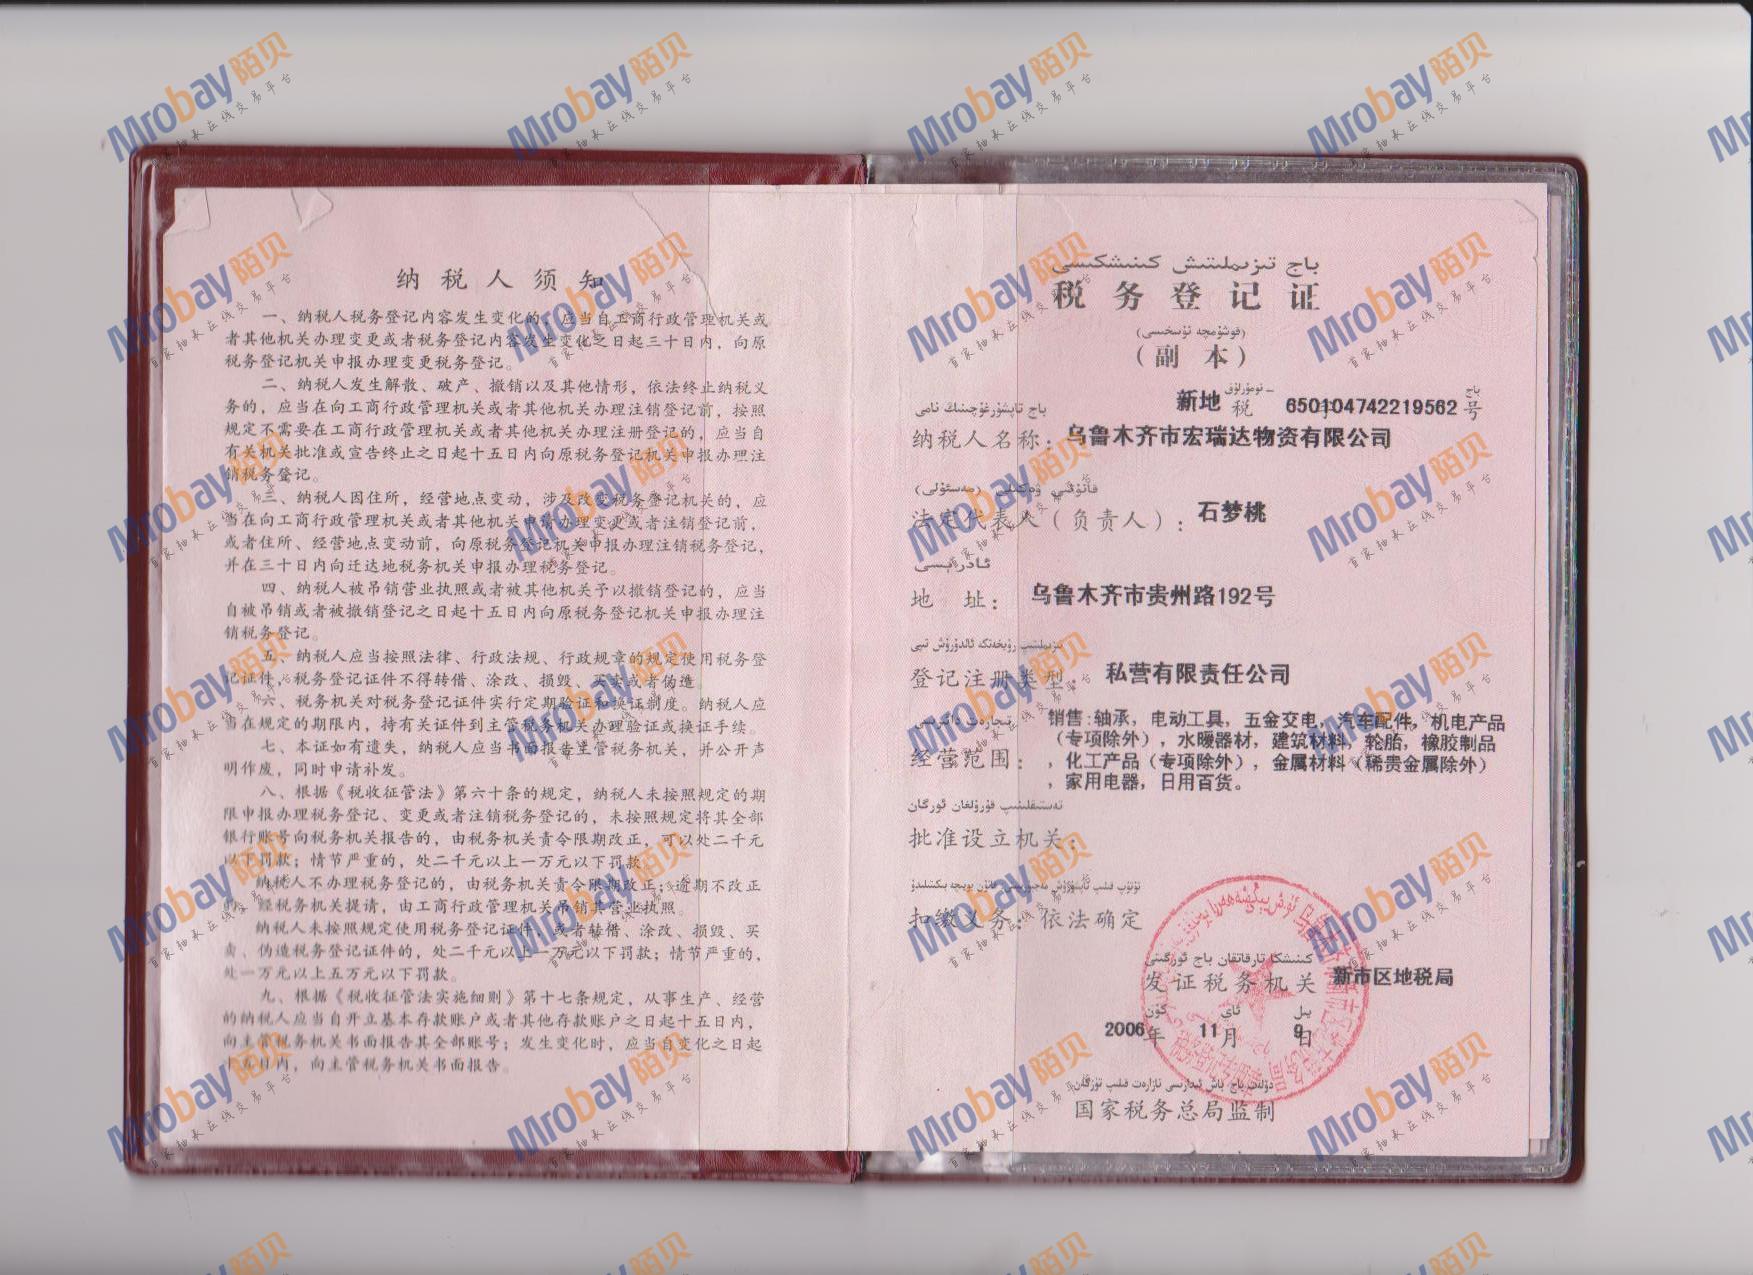 纳税人须知
一、纳税人税务登记内容发生变化的，应当自工商行政管理机关或
者其他机关办理变更或者税务登记内容发生变化之日起三十日内，向原
税务登记机关申报办理变更税务登记。
二、纳税人发生解散、破产、撤销以及其他情形，依法终止纳税义
务的，应当在向工商行政管理机关或者其他机关办理注销登记前，按照
规定不需要在工商行政管理机关或者其他机关办理注册登记的，应当自
有关机关批准或宣告终止之日起十五日内向原税务登记机关申报办理注
销税务登记。
三、纳税人因住所，经营地点变动，涉及改变税务登记机关的，应
当在向工商行政管理机关或者其他机关申请办理变更或者注销登记前，
或者住所、经营地点变动前，向原税务登记机关申报办理注销税务登记，
并在三十日内向迁达地税务机关申报办理税务登记。
四、纳税人被吊销营业执照或者被其他机关予以撤销登记的，应当
自被吊销或者被撤销登记之日起十五日内向原税务登记机关申报办理注
销税务登记。
五、纳税人应当按照法律、行政法规、行政规章的规定使用税务登
记证件，税务登记证件不得转借、涂改、损毁、买卖或者伪造。
六、税务机关对税务登记证件实行定期验证和换证制度。纳税人应
当在规定的期限内，持有关证件到主管税务机关办理验证或换证手续。
七、本证如有遗失，纳税人应当书面报告主管税务机关，并公开声
明作废，同时申请补发。
八、根据《税收征管法》第六十条的规定，纳税人未按照规定的期
限申报办理税务登记、变更或者注销税务登记的，未按照规定将其全部
银行账号向税务机关报告的，由税务机关责令限期改正，可以处二千元
以下罚款；情节严重的，处二千元以上一万元以下罚款。
纳税人不办理税务登记的，由税务机关责令限期改正；逾期不改正
的，经税务机关提请，由工商行政管理机关吊销其营业执照。
纳税人未按照规定使用税务登记证件，或者转借、涂改、损毁、买
卖、伪造税务登记证件的，处二千元以上一万元以下罚款；情节严重的，
处一万元以上五万元以下罚款。
九、根据《税收征管法实施细则》第十七条规定，从事生产、经营
的纳税人应当自开立基本存款账户或者其他存款账户之日起十五日内，
向主管税务机关书面报告其全部账号；发生变化时，应当自变化之日起
十五日内，向主管税务机关书面报告。
باج تىزىملىتىش كىنىشكىسى
税务登记证
(قوشۇمچە نۇسخىسى)
（副本）
新地税 字650104742219562号
باج تاپشۇرغۇچىنىڭ نامى
纳税人名称：乌鲁木齐市宏瑞达物资有限公司
قانۇنىي ۋەكىلى (مەسئۇلى)
法定代表人（负责人）：石梦桃
ئادرېسى
地 址：乌鲁木齐市贵州路192号
登记注册类型：私营有限责任公司
تىجارەت دائىرىسى
经营范围：销售:轴承，电动工具，五金交电，汽车配件，机电产品
（专项除外），水暖器材，建筑材料，轮胎，橡胶制品
，化工产品（专项除外），金属材料（稀贵金属除外）
，家用电器，日用百货。
تەستىقلىنىپ قۇرۇلغان ئورگان
批准设立机关：
扣缴义务：依法确定
كىنىشكا تارقاتقان باج ئورگىنى
发证税务机关 新市区地税局
يىل ئاي كۈن
2006年 11月 9日
国家税务总局监制
Mrobay陌贝
首家轴承在线交易平台